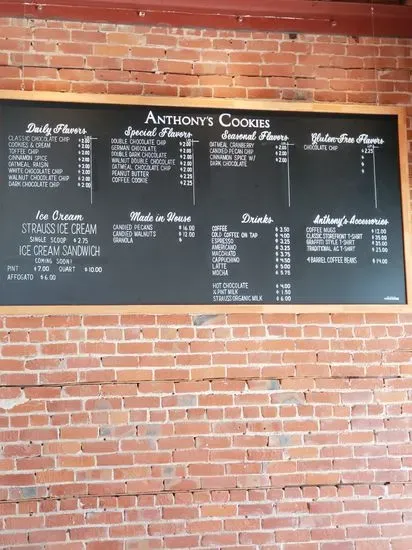 ANTHONY'S COOKIES
Daily Flavors
CLASSIC CHOCOLATE CHIP $2.00
COOKIES & CREAM $2.00
TOFFEE CHIP $2.00
CINNAMON SPICE $2.00
OATMEAL RAISIN $2.00
WHITE CHOCOLATE CHIP $2.00
WALNUT CHOCOLATE CHIP $2.00
DARK CHOCOLATE CHIP $2.00
Special Flavors
DOUBLE CHOCOLATE CHIP $2.00
GERMAN CHOCOLATE $2.00
DOUBLE DARK CHOCOLATE $2.00
WALNUT DOUBLE CHOCOLATE $2.00
OATMEAL CHOCOLATE CHIP $2.00
PEANUT BUTTER $2.25
COFFEE COOKIE $2.25
Seasonal Flavors
OATMEAL CRANBERRY $2.00
CANDIED PECAN CHIP $2.00
CINNAMON SPICE W/ $2.00
DARK CHOCOLATE
Gluten-Free Flavors
CHOCOLATE CHIP $2.25
$
$
$
Ice Cream
STRAUSS ICE CREAM
SINGLE SCOOP $2.75
ICE CREAM SANDWICH
COMING SOON!
PINT $7.00 QUART $10.00
AFFOGATO $6.00
Made in House
CANDIED PECANS $16.00
CANDIED WALNUTS $12.00
GRANOLA $
Drinks
COFFEE $2.50
COLD COFFEE ON TAP $4.00
ESPRESSO $3.25
AMERICANO $3.25
MACCHIATO $3.75
CAPPUCCINO $4.50
LATTE $5.00
MOCHA $5.75
HOT CHOCOLATE $4.00
½ PINT MILK $1.50
STRAUSS ORGANIC MILK $6.00
Anthony's Accessories
COFFEE MUGS $12.00
CLASSIC STOREFRONT T-SHIRT $25.00
GRAFFITI STYLE T-SHIRT $25.00
TRADITIONAL A.C T-SHIRT $25.00
4 BARREL COFFEE BEANS $14.00